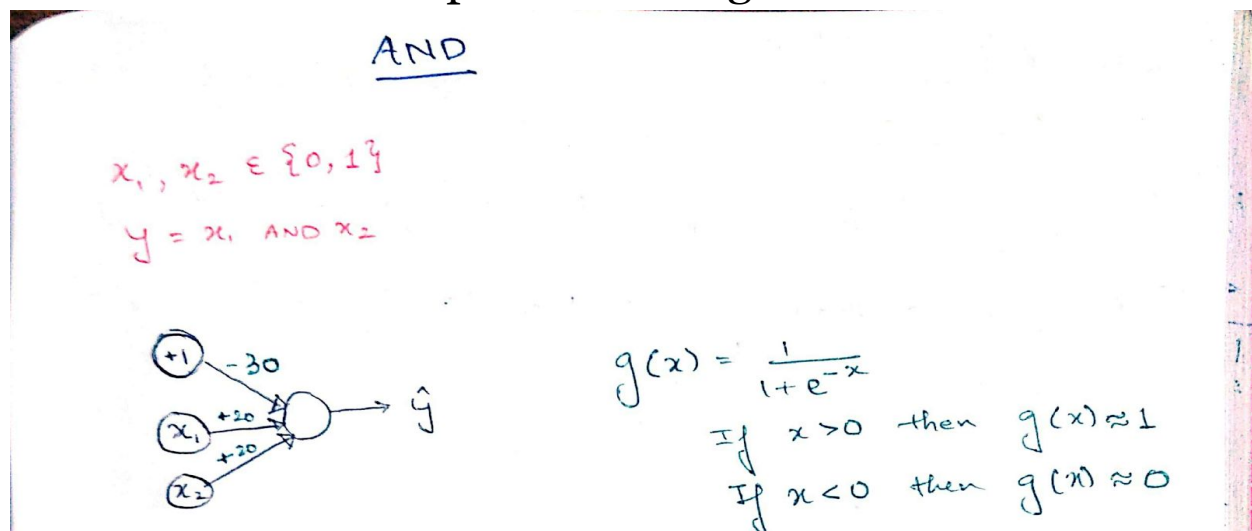 AND
x₁, x₂ ε {0, 1}
y = x₁ AND x₂
+1
-30
x₁
+20
x₂
+20
ŷ
g(x) = 1 / (1 + e^-x)
If x > 0 then g(x) ≈ 1
If x < 0 then g(x) ≈ 0